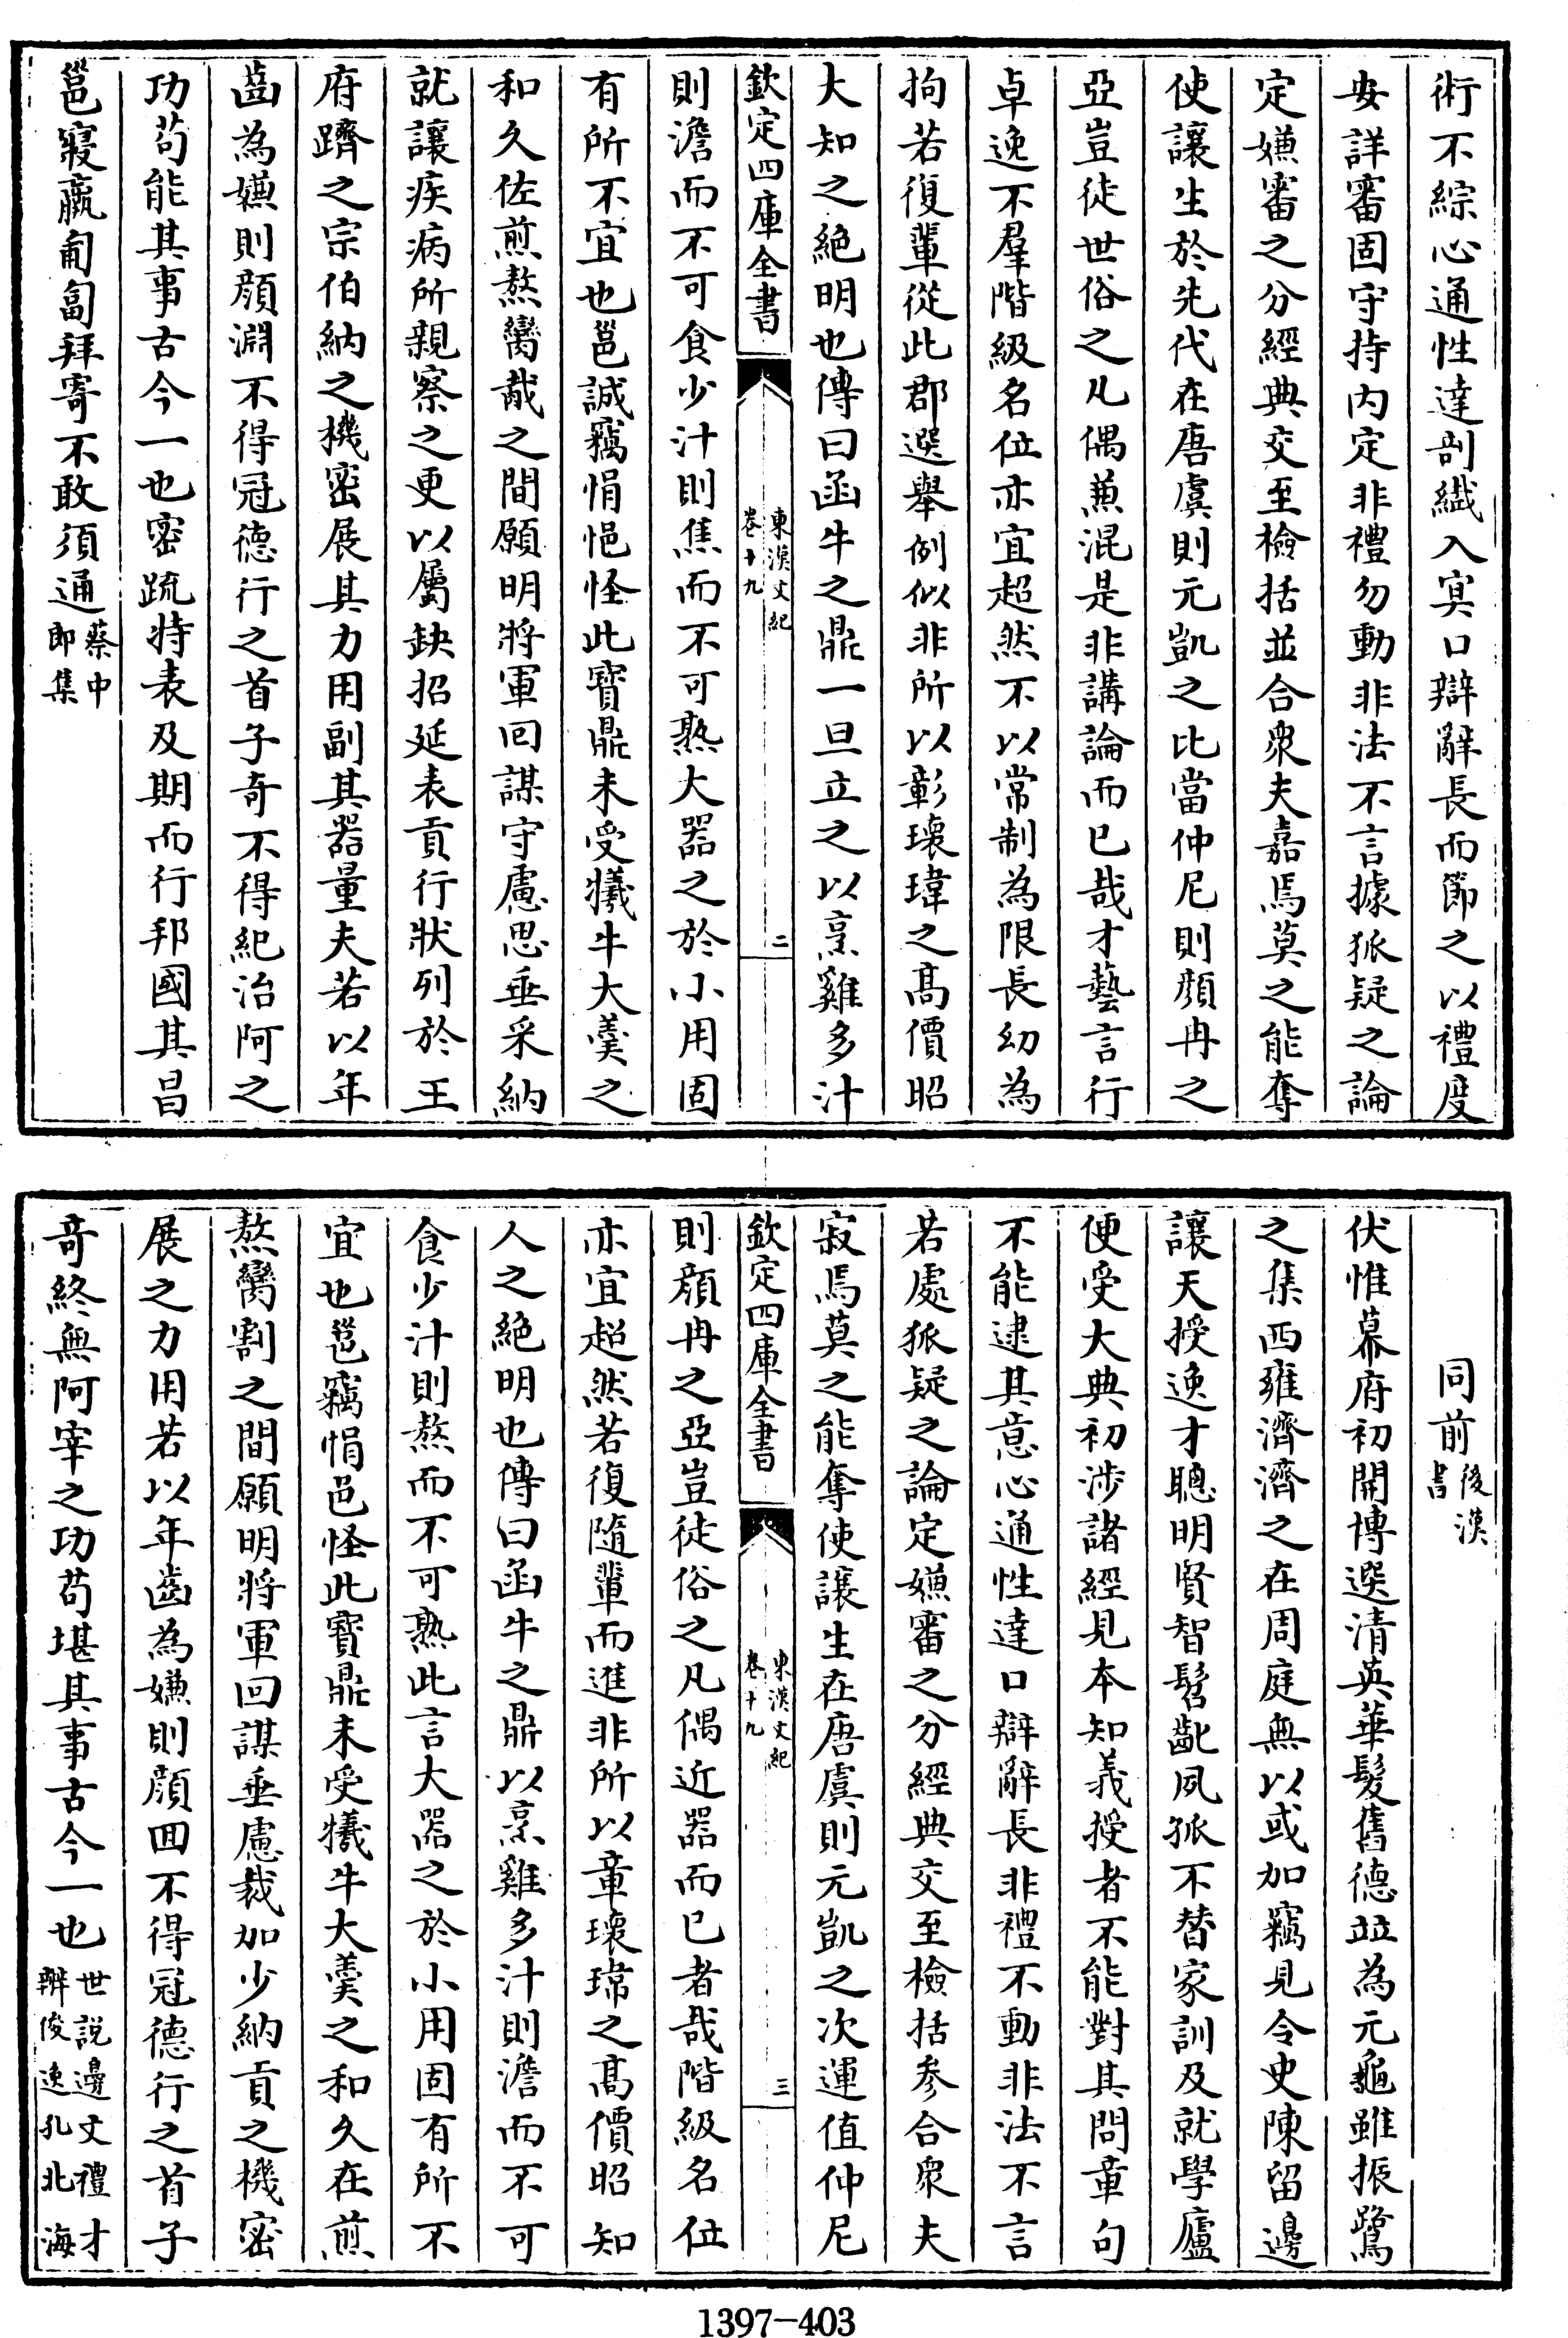 術不綜心通性達剖纎入冥口辯辭長而節之以禮度
安詳審固守持内定非禮勿動非法不言據狐疑之論
定嫌審之分經典交至檢括並合衆夫嘉焉莫之能奪
使讓生於先代在唐虞則元凱之比當仲尼則顔冉之
亞豈徒世俗之凡偶兼混是非講論而已哉才藝言行
卓逸不羣階級名位亦宜超然不以常制為限長幼為
拘若復輩從此郡選舉例似非所以彰瓌瑋之髙價昭
大知之絶明也傳曰函牛之鼎一旦立之以烹雞多汁
欽定四庫全書
東漢文紀
卷十九
二
則澹而不可食少汁則焦而不可熟大器之於小用固
有所不宜也邕誠竊悁悒怪此寳鼎未受犧牛大羮之
和久佐煎熬臠胾之間願明將軍回謀守慮思垂采納
就讓疾病所親察之更以屬缺招延表貢行狀列於王
府躋之宗伯納之機密展其力用副其器量夫若以年
齒為嫌則顔淵不得冠德行之首子奇不得紀治阿之
功苟能其事古今一也密疏特表及期而行邦國其昌
邕寢羸匍匐拜寄不敢須通蔡中
郎集
同前後漢
書
伏惟幕府初開博選清英華髮舊德並為元龜雖振鷺
之集西雍濟濟之在周庭無以或加竊見令史陳留邊
讓天授逸才聰明賢智髫齔夙孤不替家訓及就學廬
便受大典初涉諸經見本知義授者不能對其問章句
不能逮其意心通性達口辯辭長非禮不動非法不言
若處狐疑之論定嫌審之分經典交至檢括参合衆夫
寂焉莫之能奪使讓生在唐虞則元凱之次運值仲尼
欽定四庫全書
東漢文紀
卷十九
三
則顔冉之亞豈徒俗之凡偶近器而已者哉階級名位
亦宜超然若復隨輩而進非所以章瓌瑋之髙價昭知
人之絶明也傳曰函牛之鼎以烹雞多汁則澹而不可
食少汁則熬而不可熟此言大器之於小用固有所不
宜也邕竊悁邑怪此寳鼎未受犧牛大羮之和久在煎
熬臠割之間願明將軍回謀垂慮裁加少納貢之機密
展之力用若以年齒為嫌則顔回不得冠德行之首子
奇終無阿宰之功苟堪其事古今一也世説邊文禮才
辨俊逸孔北海
1397-403